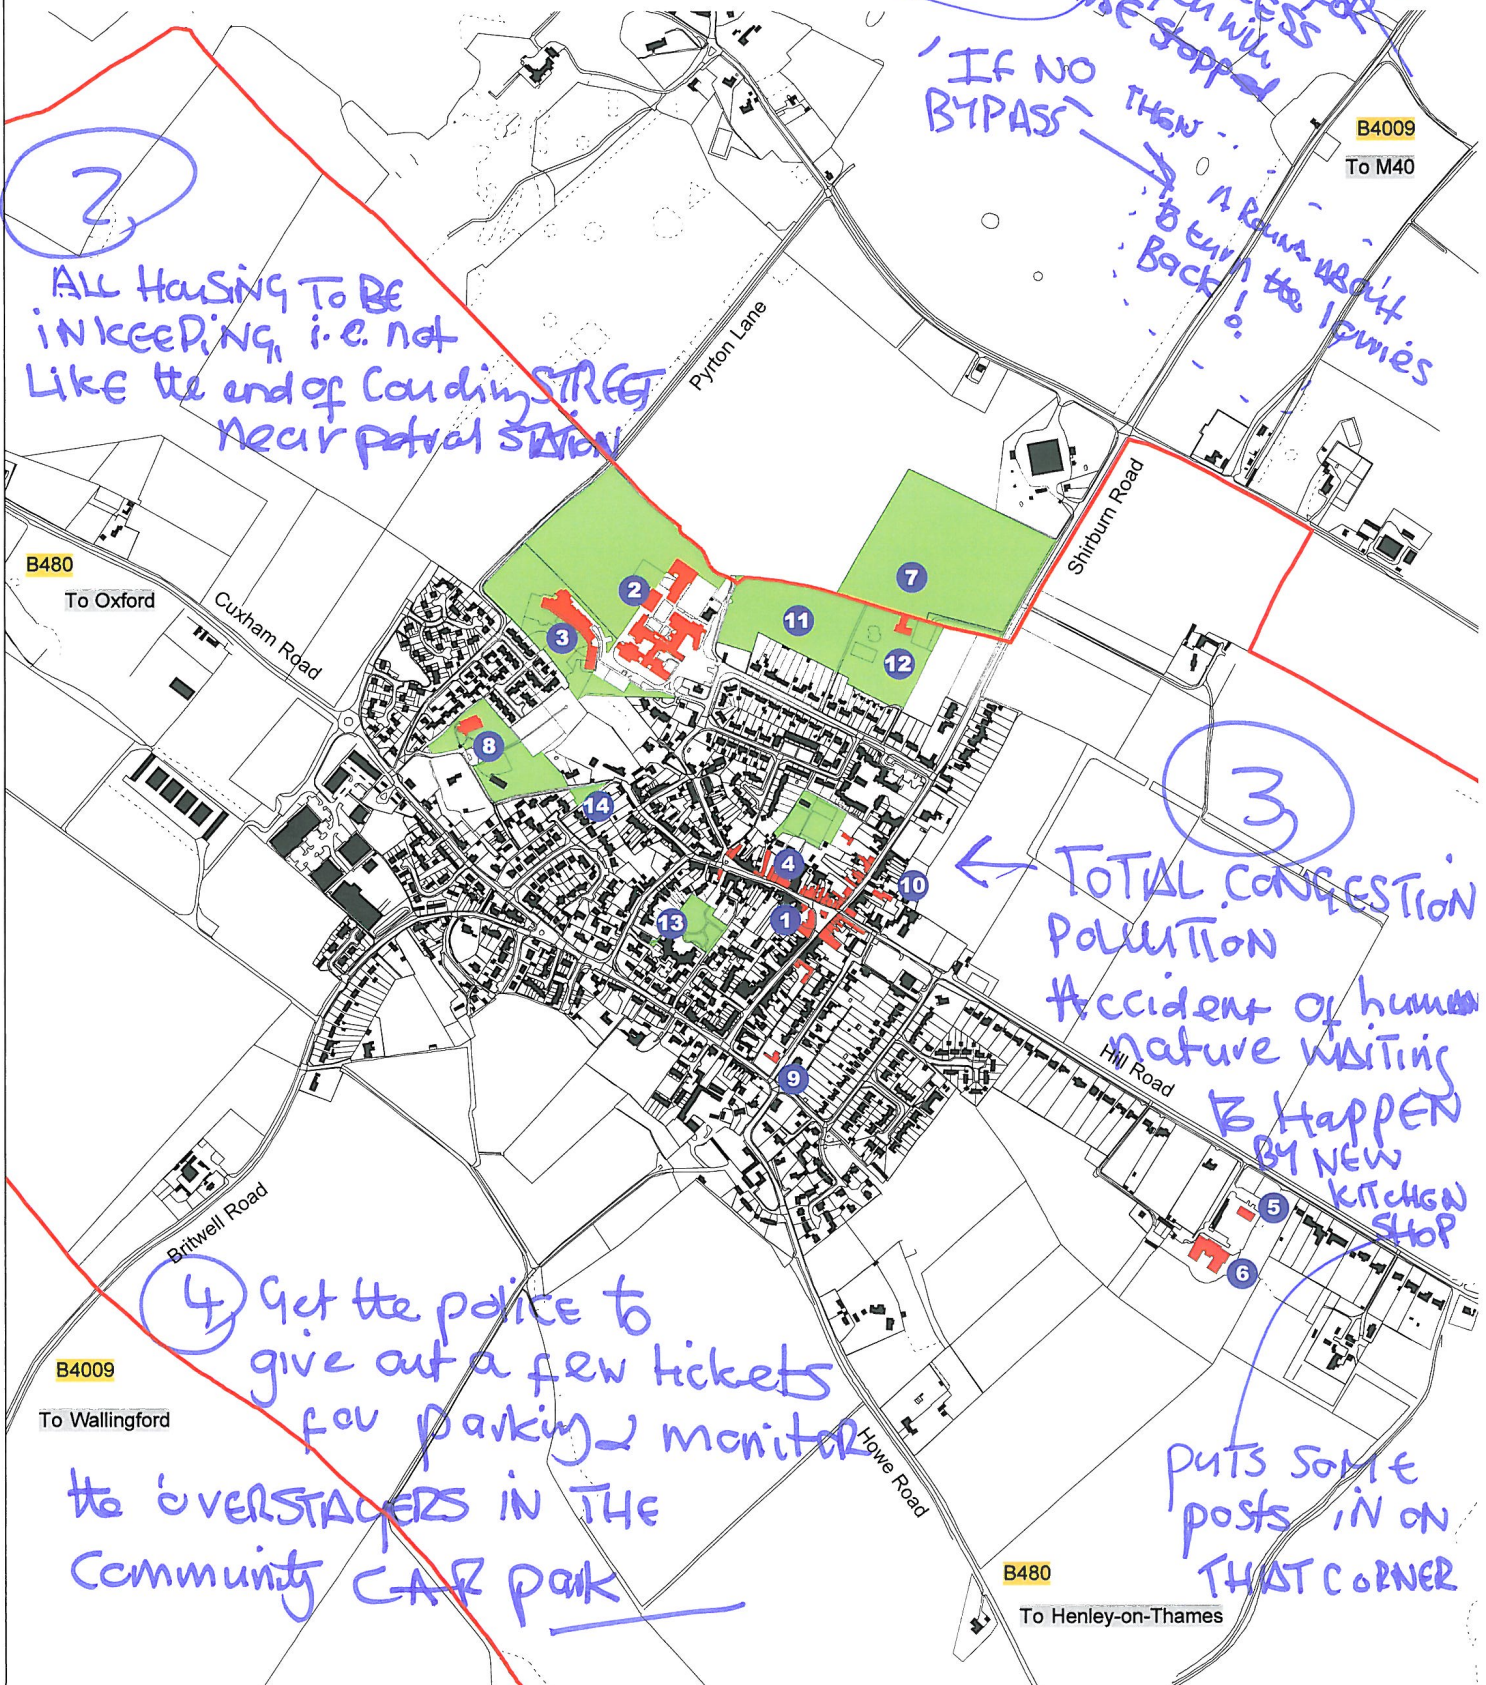 will
BE Stopped
'IF NO
BYPASS'
THEN
A Roundabout
to turn the lorries
Back!
B4009
To M40
2
ALL HOUSING TO BE
iN KEEPiNG, i.e. not
LiKE the end of STREET
near petrol STATiON
Pyrton Lane
Shirburn Road
B480
To Oxford
Cuxham Road
2
3
7
11
12
8
14
4
10
13
1
9
3
← TOTAL CONGESTION
POLLUTION
Accident of human
nature WAiTiNg
to HAPPEN
BY NEW
KITCHEN
SHOP
Hill Road
5
6
puts SOME
posts iN ON
THAT CORNER
Britwell Road
4 Get the police to
give out a few tickets
for parking & monitor
the OVERSTAYERS IN THE
Community CAR park
B4009
To Wallingford
Howe Road
B480
To Henley-on-Thames